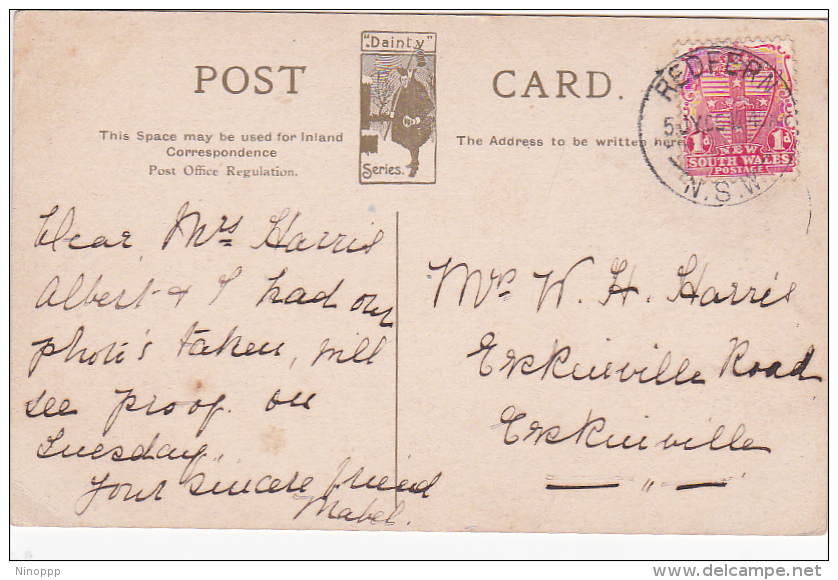 POST CARD.
"Dainty"
Series.
This Space may be used for Inland
Correspondence
Post Office Regulation.
The Address to be written here
REDFERN
N.S.W
1d NEW 1d
SOUTH WALES
POSTAGE
Dear Mrs Harris
Albert & I had our
photo's taken, will
see proof on
Tuesday,
Your sincere friend
Mabel.
Mrs W. H. Harris
Erskineville Road
Erskineville
Ninoppp
delcampe.net